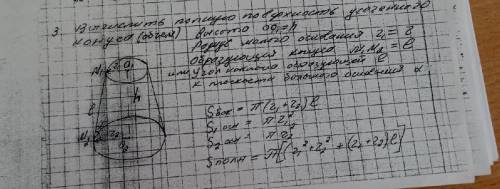 3. Вычислить полную поверхность усеченного
конуса (объем) высота OO₁ = h
Радиус малого основания r₁ = r
Образующая конуса M₁M₂ = l
или угол наклона образующей l
к плоскости большого основания α
M₁ r₁ O₁
l h
M₂ r₂ O₂
Sбок = π(r₁+r₂)l
S₁осн = πr₁²
S₂осн = πr₂²
Sполн = π[(r₁²+r₂²+(r₁+r₂)l]